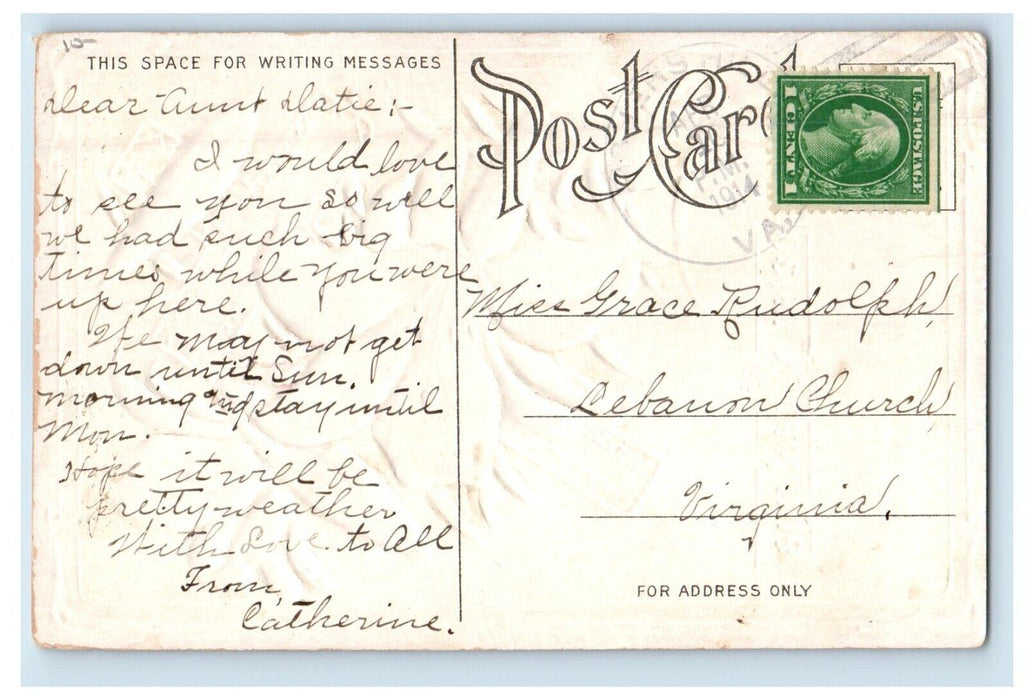 10-
THIS SPACE FOR WRITING MESSAGES
Dear Aunt Datie:-
I would love
to see you so well
we had such big
times while you were
up here.
We may not get
down until Sun.
morning and stay until
Mon.
Hope it will be
pretty weather
With Love to All
From,
Catherine.
Post Card
VA.
P.M.
1914
U.S. POSTAGE
1 CENT 1
Miss Grace Rudolph,
Lebanon Church,
Virginia.
FOR ADDRESS ONLY